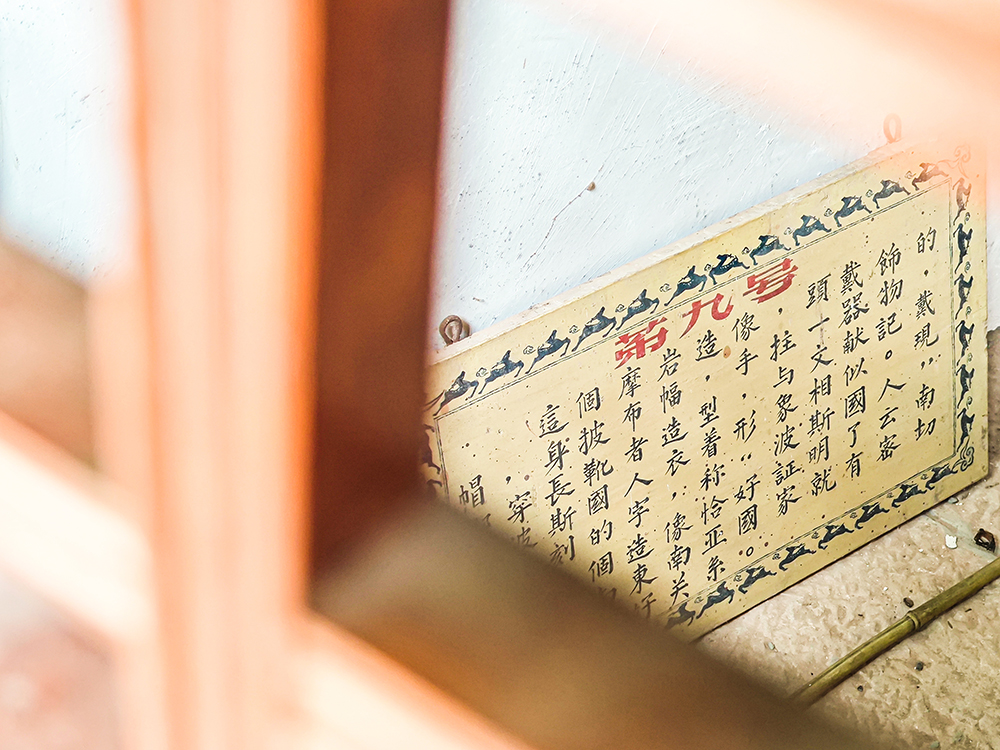 第九号
這個摩岩造像，頭戴飾的
帽，身披布幅，手拄一器物，
穿長靴者造型，与文献記戴
波斯國人衣着形象相似。現
刻的字，称“波斯國人”，
個造像恰好証明了云南
東南亚國家就有密切
好关系。